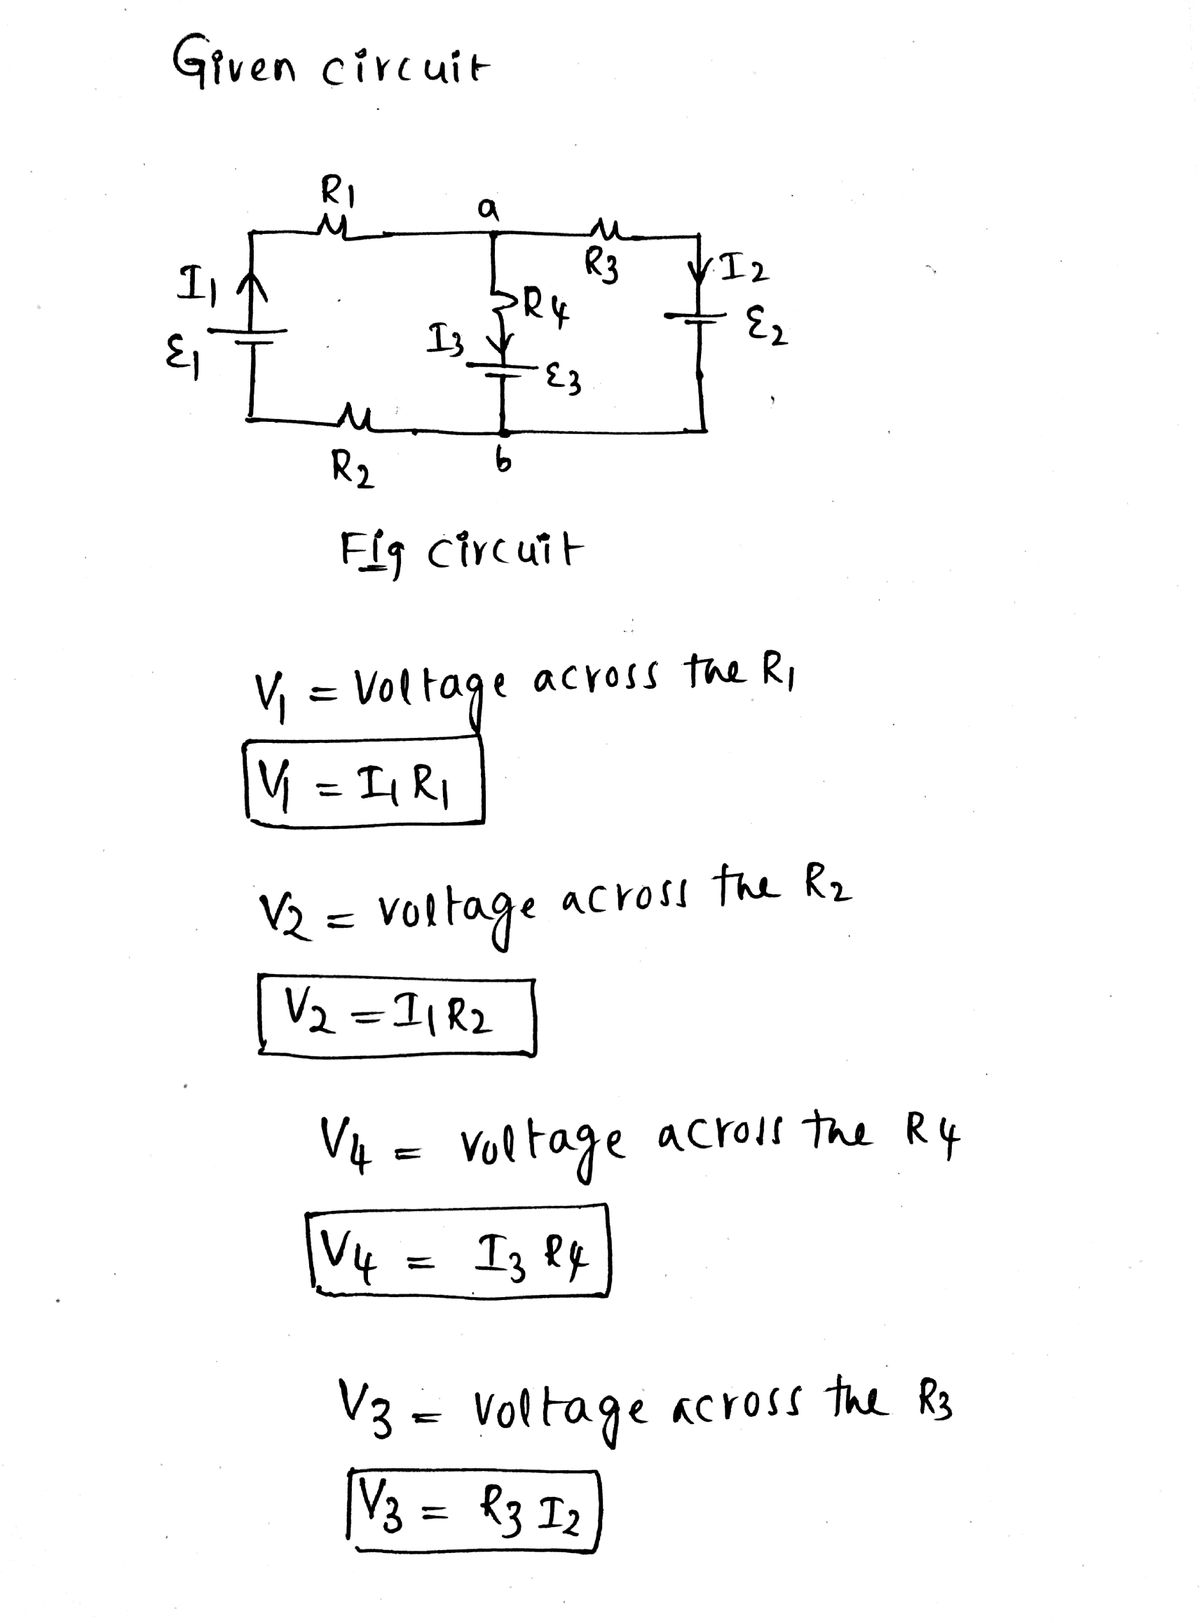 Given circuit
R1
a
R3
I1
I2
R4
I3
ε1
ε2
ε3
R2
b
Fig circuit
V1 = Voltage across the R1
V1 = I1 R1
V2 = voltage across the R2
V2 = I1 R2
V4 = voltage across the R4
V4 = I3 R4
V3 = Voltage across the R3
V3 = R3 I2